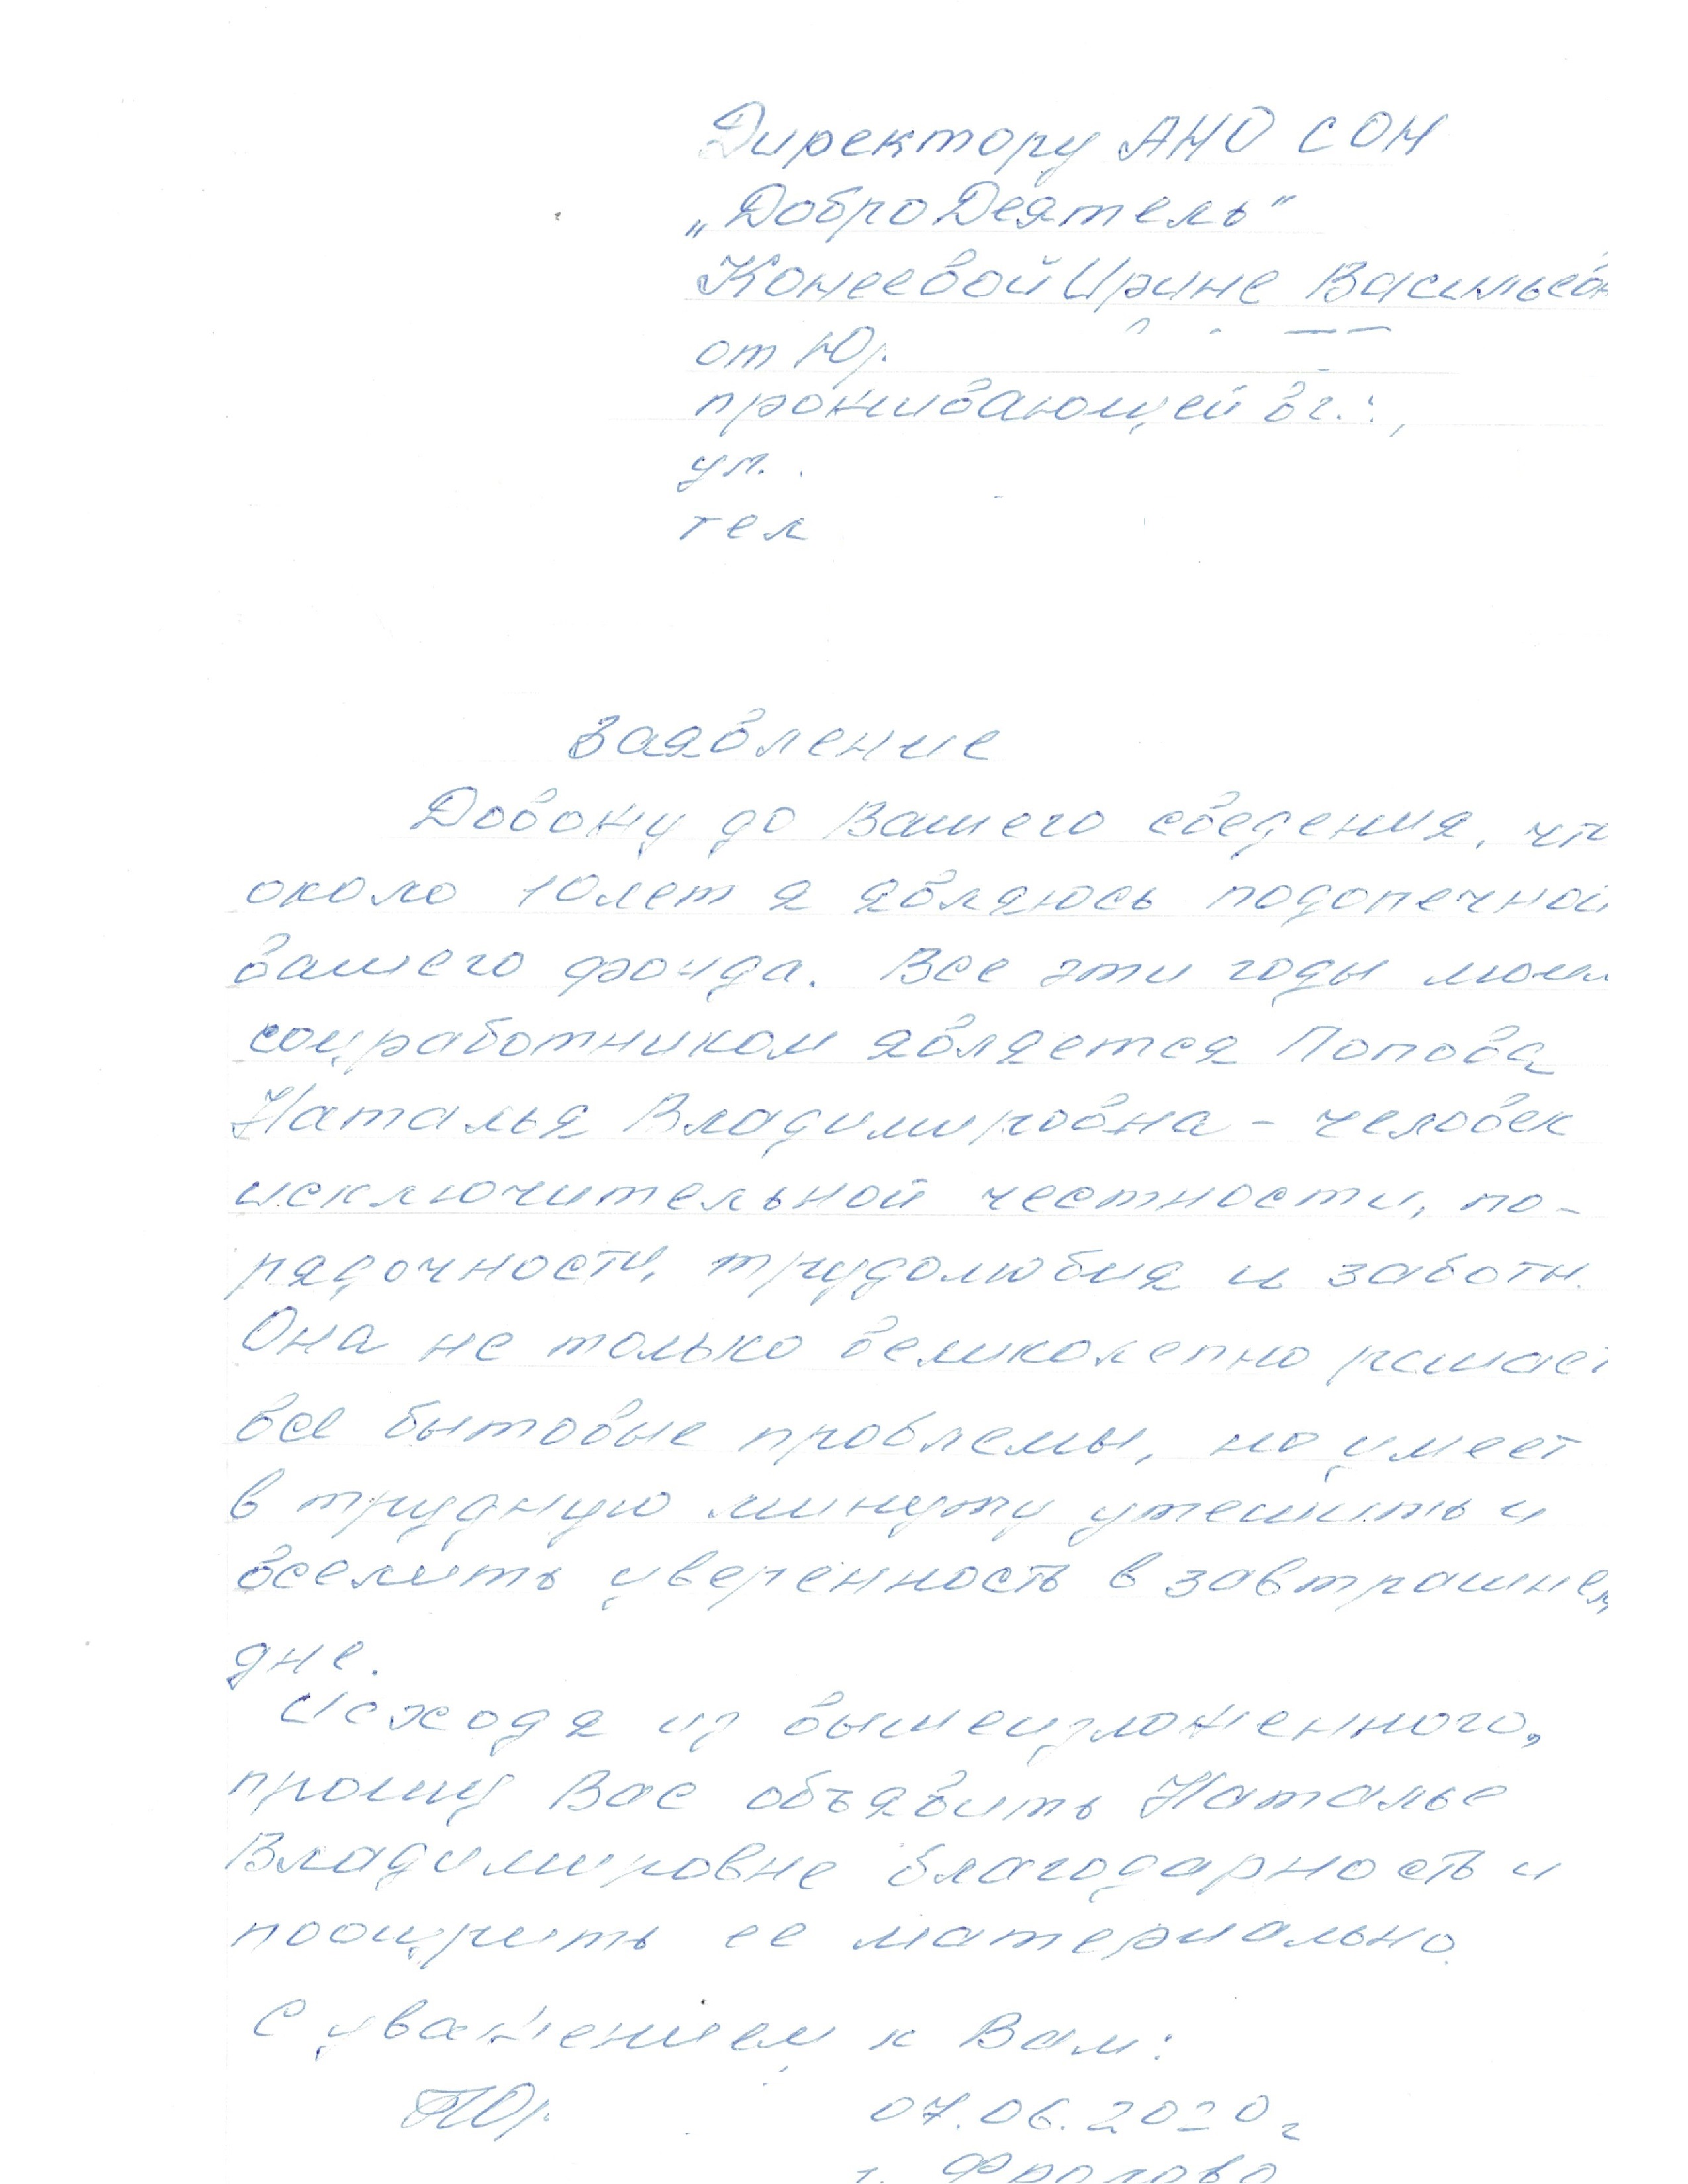 Директору АНО СОН
„ДоброДеятель"
Конеевой Ирине Васильевн
от Ю
проживающей в г.
ул.
тел
Заявление
Довожу до Вашего сведения, чт
около 10 лет я являюсь подопечной
вашего фонда. Все эти годы моим
соцработником является Попова
Наталья Владимировна - человек
исключительной честности, по-
рядочности, трудолюбия и заботы.
Она не только великолепно решает
все бытовые проблемы, но умеет
в трудную минуту утешить и
вселить уверенность в завтрашнем
дне.
Исходя из вышеизложенного,
прошу Вас объявить Наталье
Владимировне благодарность и
поощрить ее материально.
С уважением к Вам:
07.06.2020г
г. Фролово